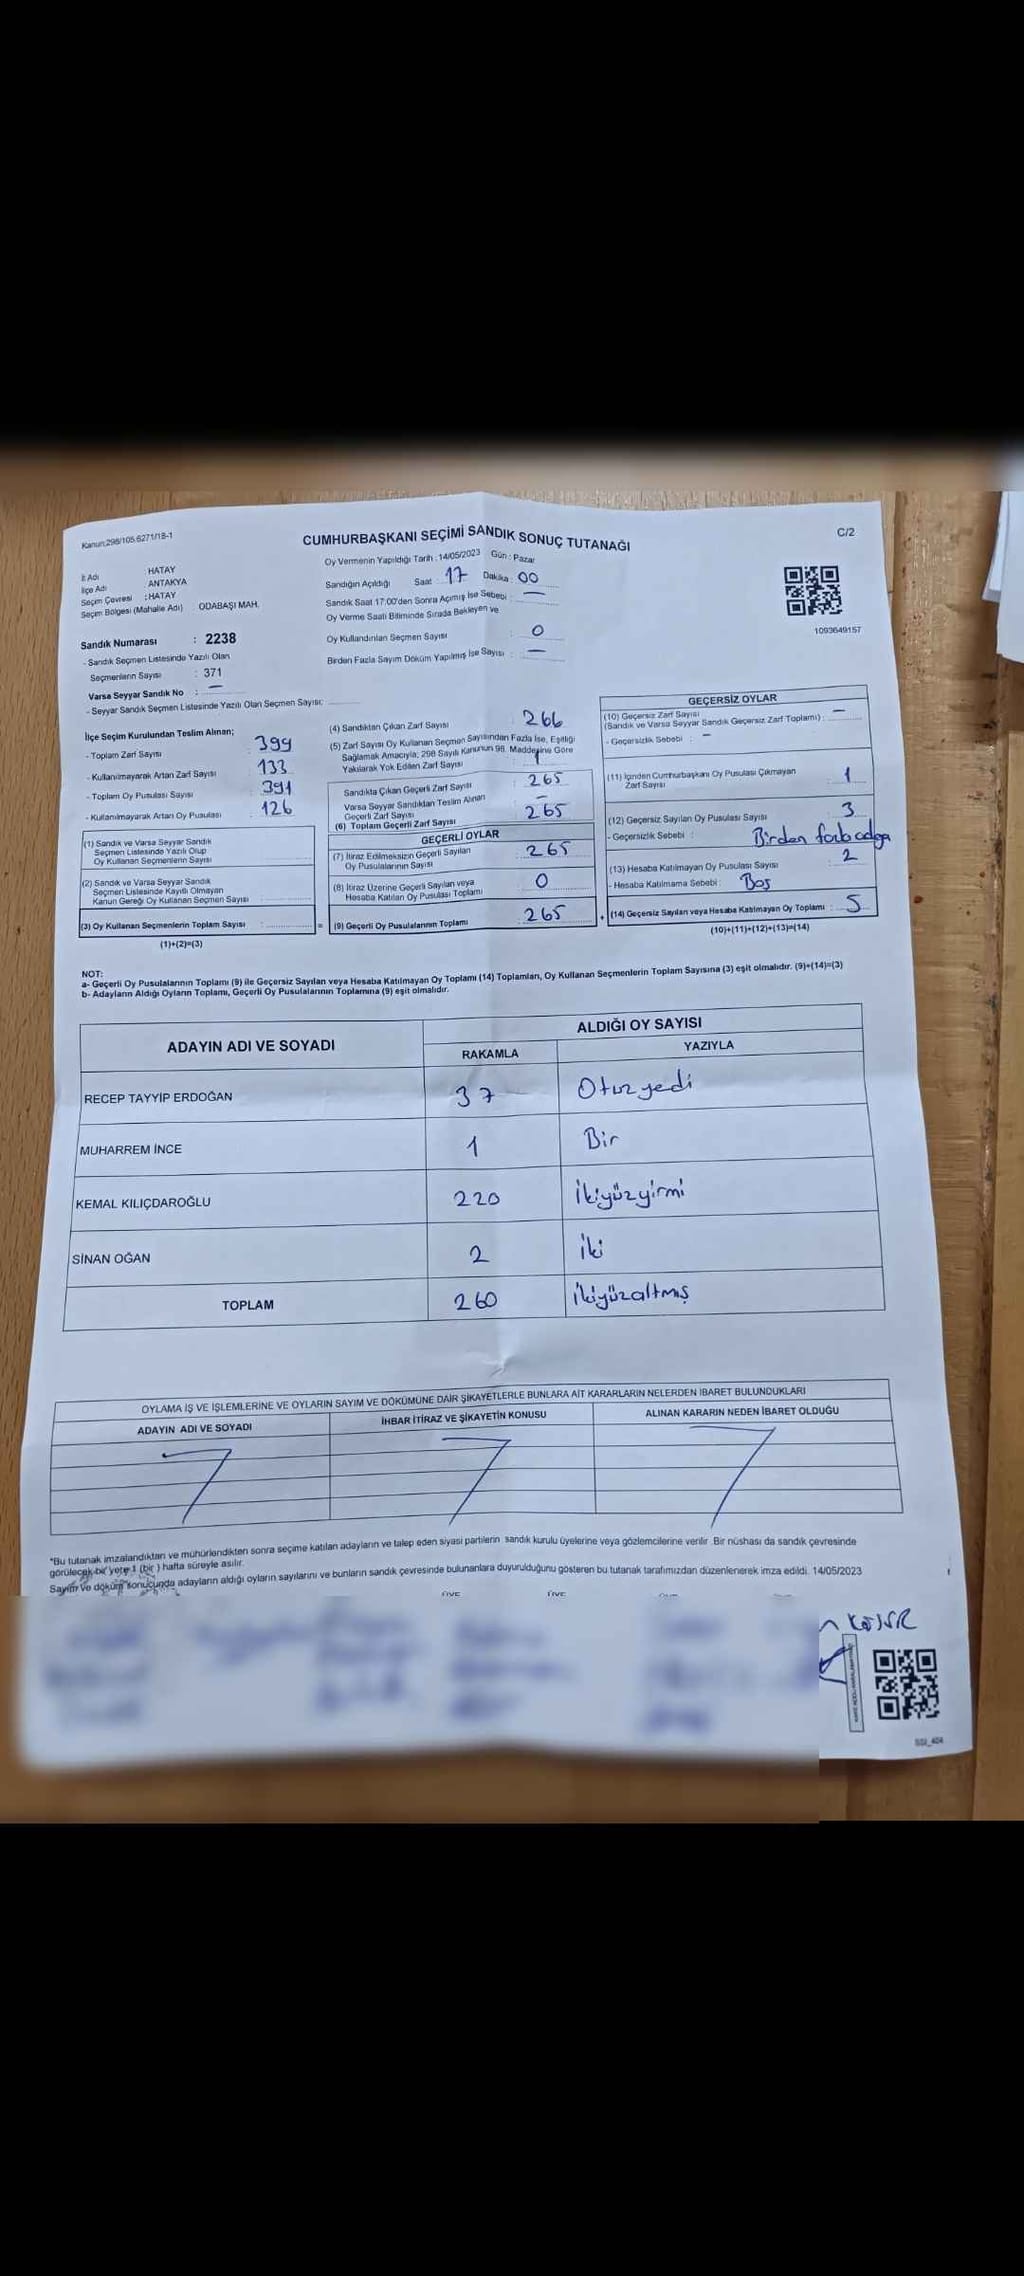 Kanun:298/105,6271/18-1
CUMHURBAŞKANI SEÇİMİ SANDIK SONUÇ TUTANAĞI
C/2
Oy Vermenin Yapıldığı Tarih : 14/05/2023 Gün : Pazar
İl Adı : HATAY
İlçe Adı : ANTAKYA
Seçim Çevresi : HATAY
Seçim Bölgesi (Mahalle Adı) ODABAŞI MAH.
Sandığın Açıldığı Saat : 17 Dakika : 00
Sandık Saat 17:00'den Sonra Açımış İse Sebebi : —
Oy Verme Saati Bitiminde Sırada Bekleyen ve
Oy Kullandırılan Seçmen Sayısı : 0
Birden Fazla Sayım Döküm Yapılmış İse Sayısı : —
1093649157
Sandık Numarası : 2238
- Sandık Seçmen Listesinde Yazılı Olan
Seçmenlerin Sayısı : 371
Varsa Seyyar Sandık No : —
- Seyyar Sandık Seçmen Listesinde Yazılı Olan Seçmen Sayısı:
İlçe Seçim Kurulundan Teslim Alınan;
- Toplam Zarf Sayısı : 399
- Kullanılmayarak Artan Zarf Sayısı : 133
- Toplam Oy Pusulası Sayısı : 391
- Kullanılmayarak Artan Oy Pusulası : 126
(1) Sandık ve Varsa Seyyar Sandık
Seçmen Listesinde Yazılı Olup
Oy Kullanan Seçmenlerin Sayısı :
(2) Sandık ve Varsa Seyyar Sandık
Seçmen Listesinde Kayıtlı Olmayan
Kanun Gereği Oy Kullanan Seçmen Sayısı :
(3) Oy Kullanan Seçmenlerin Toplam Sayısı : =
(1)+(2)=(3)
(4) Sandıktan Çıkan Zarf Sayısı : 266
(5) Zarf Sayısı Oy Kullanan Seçmen Sayısından Fazla İse, Eşitliği
Sağlamak Amacıyla, 298 Sayılı Kanunun 98. Maddesine Göre
Yakılarak Yok Edilen Zarf Sayısı : 1
Sandıkta Çıkan Geçerli Zarf Sayısı : 265
Varsa Seyyar Sandıktan Teslim Alınan
Geçerli Zarf Sayısı : —
(6) Toplam Geçerli Zarf Sayısı : 265
GEÇERLİ OYLAR
(7) İtiraz Edilmeksizin Geçerli Sayılan
Oy Pusulalarının Sayısı : 265
(8) İtiraz Üzerine Geçerli Sayılan veya
Hesaba Katılan Oy Pusulası Toplamı : 0
(9) Geçerli Oy Pusulalarının Toplamı : 265 +
GEÇERSİZ OYLAR
(10) Geçersiz Zarf Sayısı
(Sandık ve Varsa Seyyar Sandık Geçersiz Zarf Toplamı) : —
- Geçersizlik Sebebi : —
(11) İçinden Cumhurbaşkanı Oy Pusulası Çıkmayan
Zarf Sayısı : 1
(12) Geçersiz Sayılan Oy Pusulası Sayısı : 3
- Geçersizlik Sebebi : Birden
(13) Hesaba Katılmayan Oy Pusulası Sayısı : 2
- Hesaba Katılmama Sebebi : Boş
(14) Geçersiz Sayılan veya Hesaba Katılmayan Oy Toplamı : 5
(10)+(11)+(12)+(13)=(14)
NOT:
a- Geçerli Oy Pusulalarının Toplamı (9) ile Geçersiz Sayılan veya Hesaba Katılmayan Oy Toplamı (14) Toplamları, Oy Kullanan Seçmenlerin Toplam Sayısına (3) eşit olmalıdır. (9)+(14)=(3)
b- Adayların Aldığı Oyların Toplamı, Geçerli Oy Pusulalarının Toplamına (9) eşit olmalıdır.
ADAYIN ADI VE SOYADI
ALDIĞI OY SAYISI
RAKAMLA YAZIYLA
RECEP TAYYİP ERDOĞAN 37 Otuzyedi
MUHARREM İNCE 1 Bir
KEMAL KILIÇDAROĞLU 220 İkiyüzyirmi
SİNAN OĞAN 2 İki
TOPLAM 260 İkiyüzaltmış
OYLAMA İŞ VE İŞLEMLERİNE VE OYLARIN SAYIM VE DÖKÜMÜNE DAİR ŞİKAYETLERLE BUNLARA AİT KARARLARIN NELERDEN İBARET BULUNDUKLARI
ADAYIN ADI VE SOYADI İHBAR İTİRAZ VE ŞİKAYETİN KONUSU ALINAN KARARIN NEDEN İBARET OLDUĞU
*Bu tutanak imzalandıktan ve mühürlendikten sonra seçime katılan adayların ve talep eden siyasi partilerin sandık kurulu üyelerine veya gözlemcilerine verilir. Bir nüshası da sandık çevresinde
görülecek bir yere 1 (bir) hafta süreyle asılır.
Sayım ve döküm sonucunda adayların aldığı oyların sayılarını ve bunların sandık çevresinde bulunanlara duyurulduğunu gösteren bu tutanak tarafımızdan düzenlenerek imza edildi. 14/05/2023
SSI_404